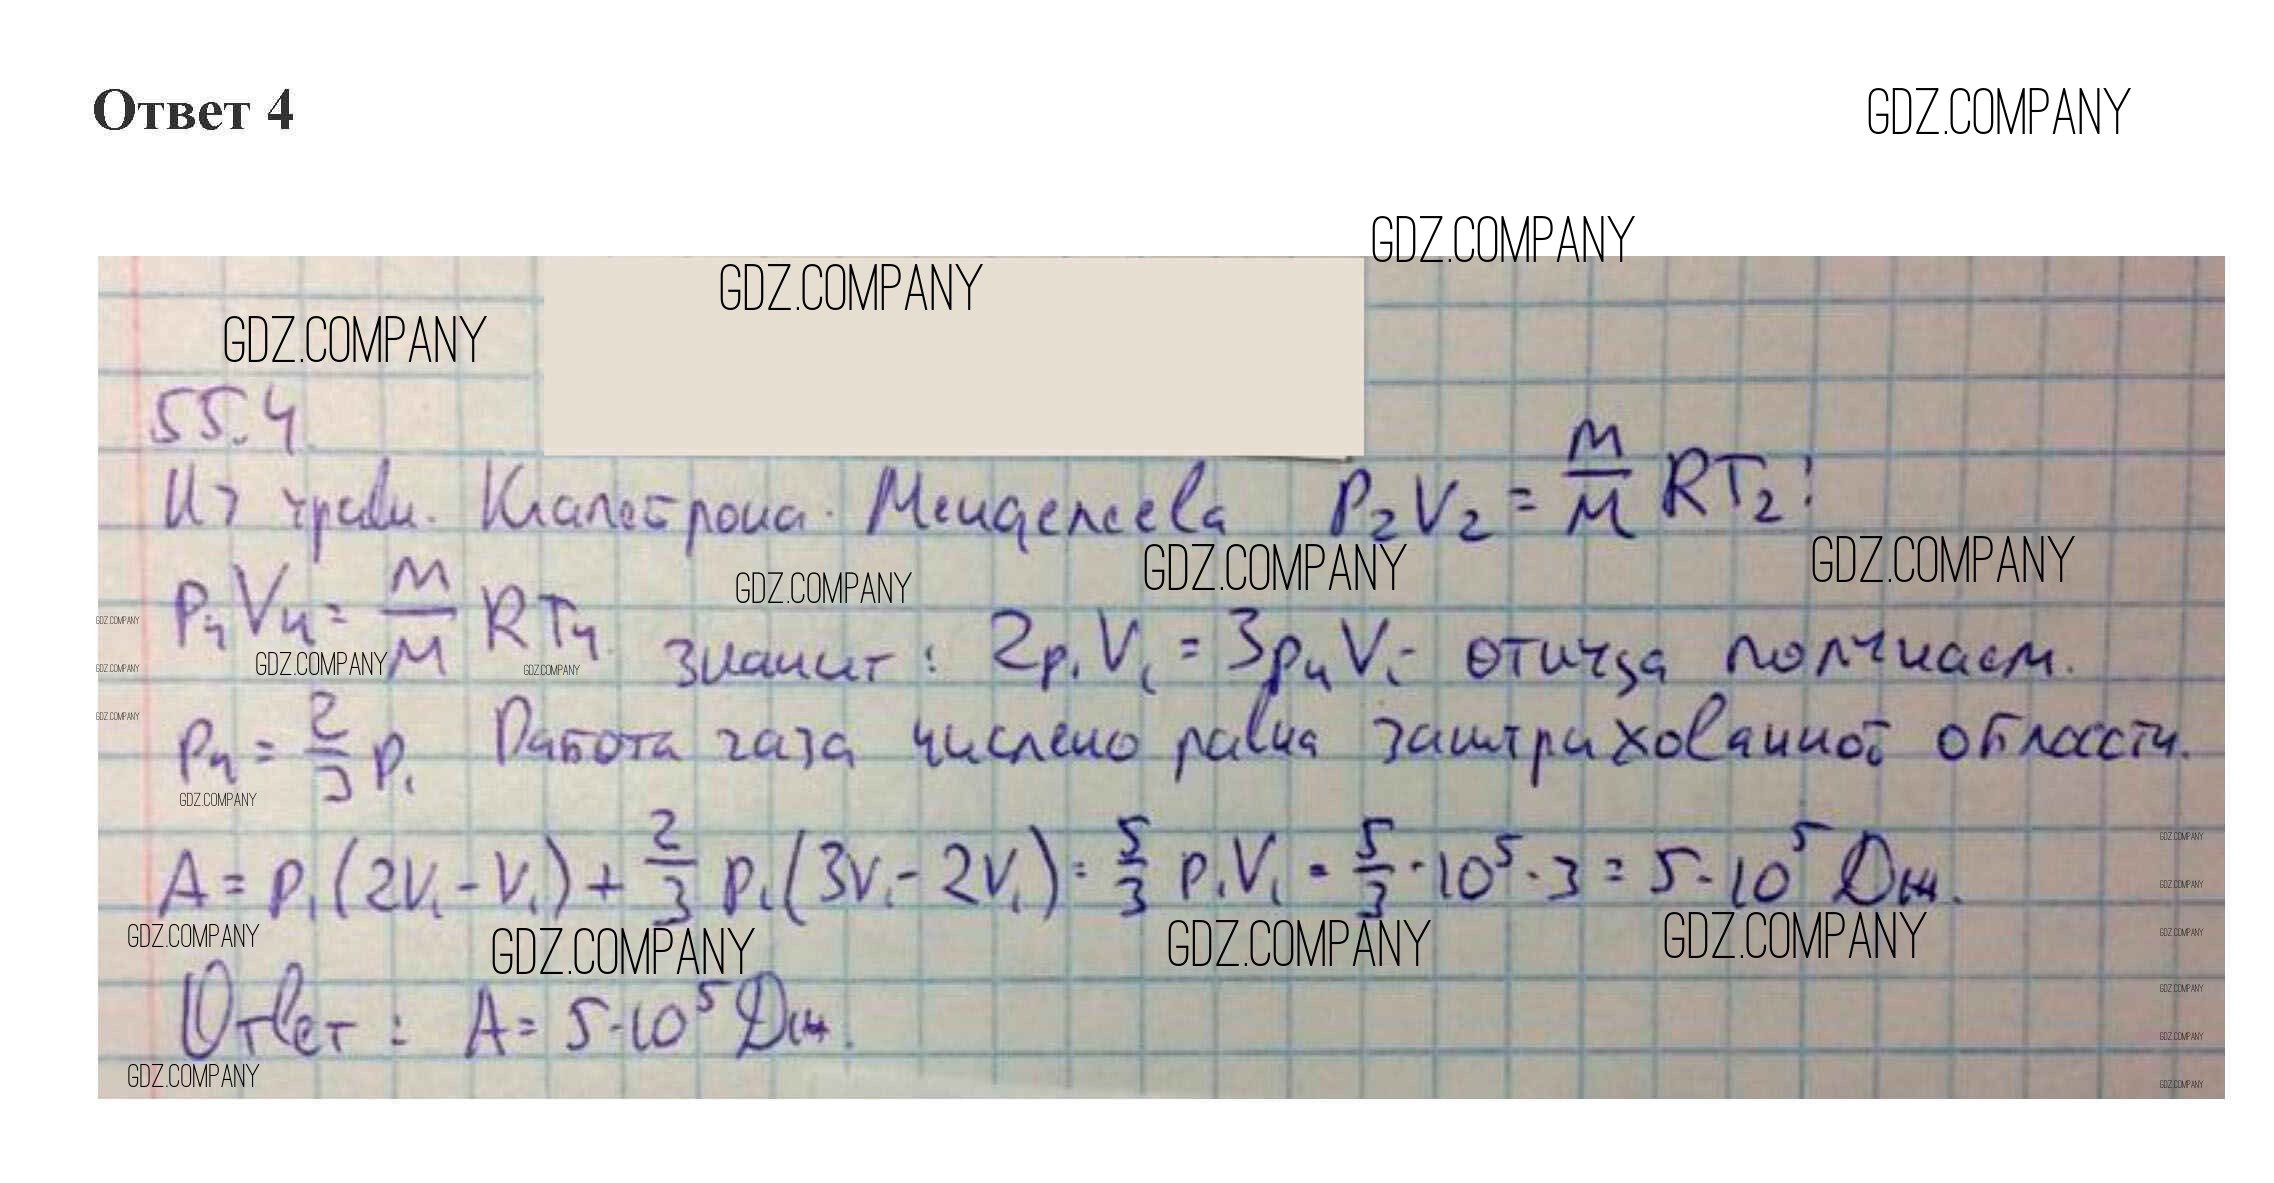 Ответ 4
GDZ.COMPANY
GDZ.COMPANY
GDZ.COMPANY
GDZ.COMPANY
55.4.
Из уравн. Клапейрона. Менделеева P₂V₂ = m/M RT₂;
GDZ.COMPANY GDZ.COMPANY GDZ.COMPANY
P₄V₄ = m/M RT₄ значит: 2p₁V₁ = 3p₄V₁ - отсюда получаем.
GDZ.COMPANY
GDZ.COMPANY GDZ.COMPANY GDZ.COMPANY
GDZ.COMPANY
P₄ = 2/3 P₁ Работа газа числено равна заштрихованной области.
GDZ.COMPANY
GDZ.COMPANY
A = p₁(2V₁ - V₁) + 2/3 p₁(3V₁ - 2V₁) = 5/3 p₁V₁ = 5/3 · 10⁵ · 3 = 5 · 10⁵ Дж.
GDZ.COMPANY
GDZ.COMPANY GDZ.COMPANY GDZ.COMPANY GDZ.COMPANY GDZ.COMPANY
GDZ.COMPANY
Ответ: A = 5·10⁵ Дж.
GDZ.COMPANY
GDZ.COMPANY GDZ.COMPANY